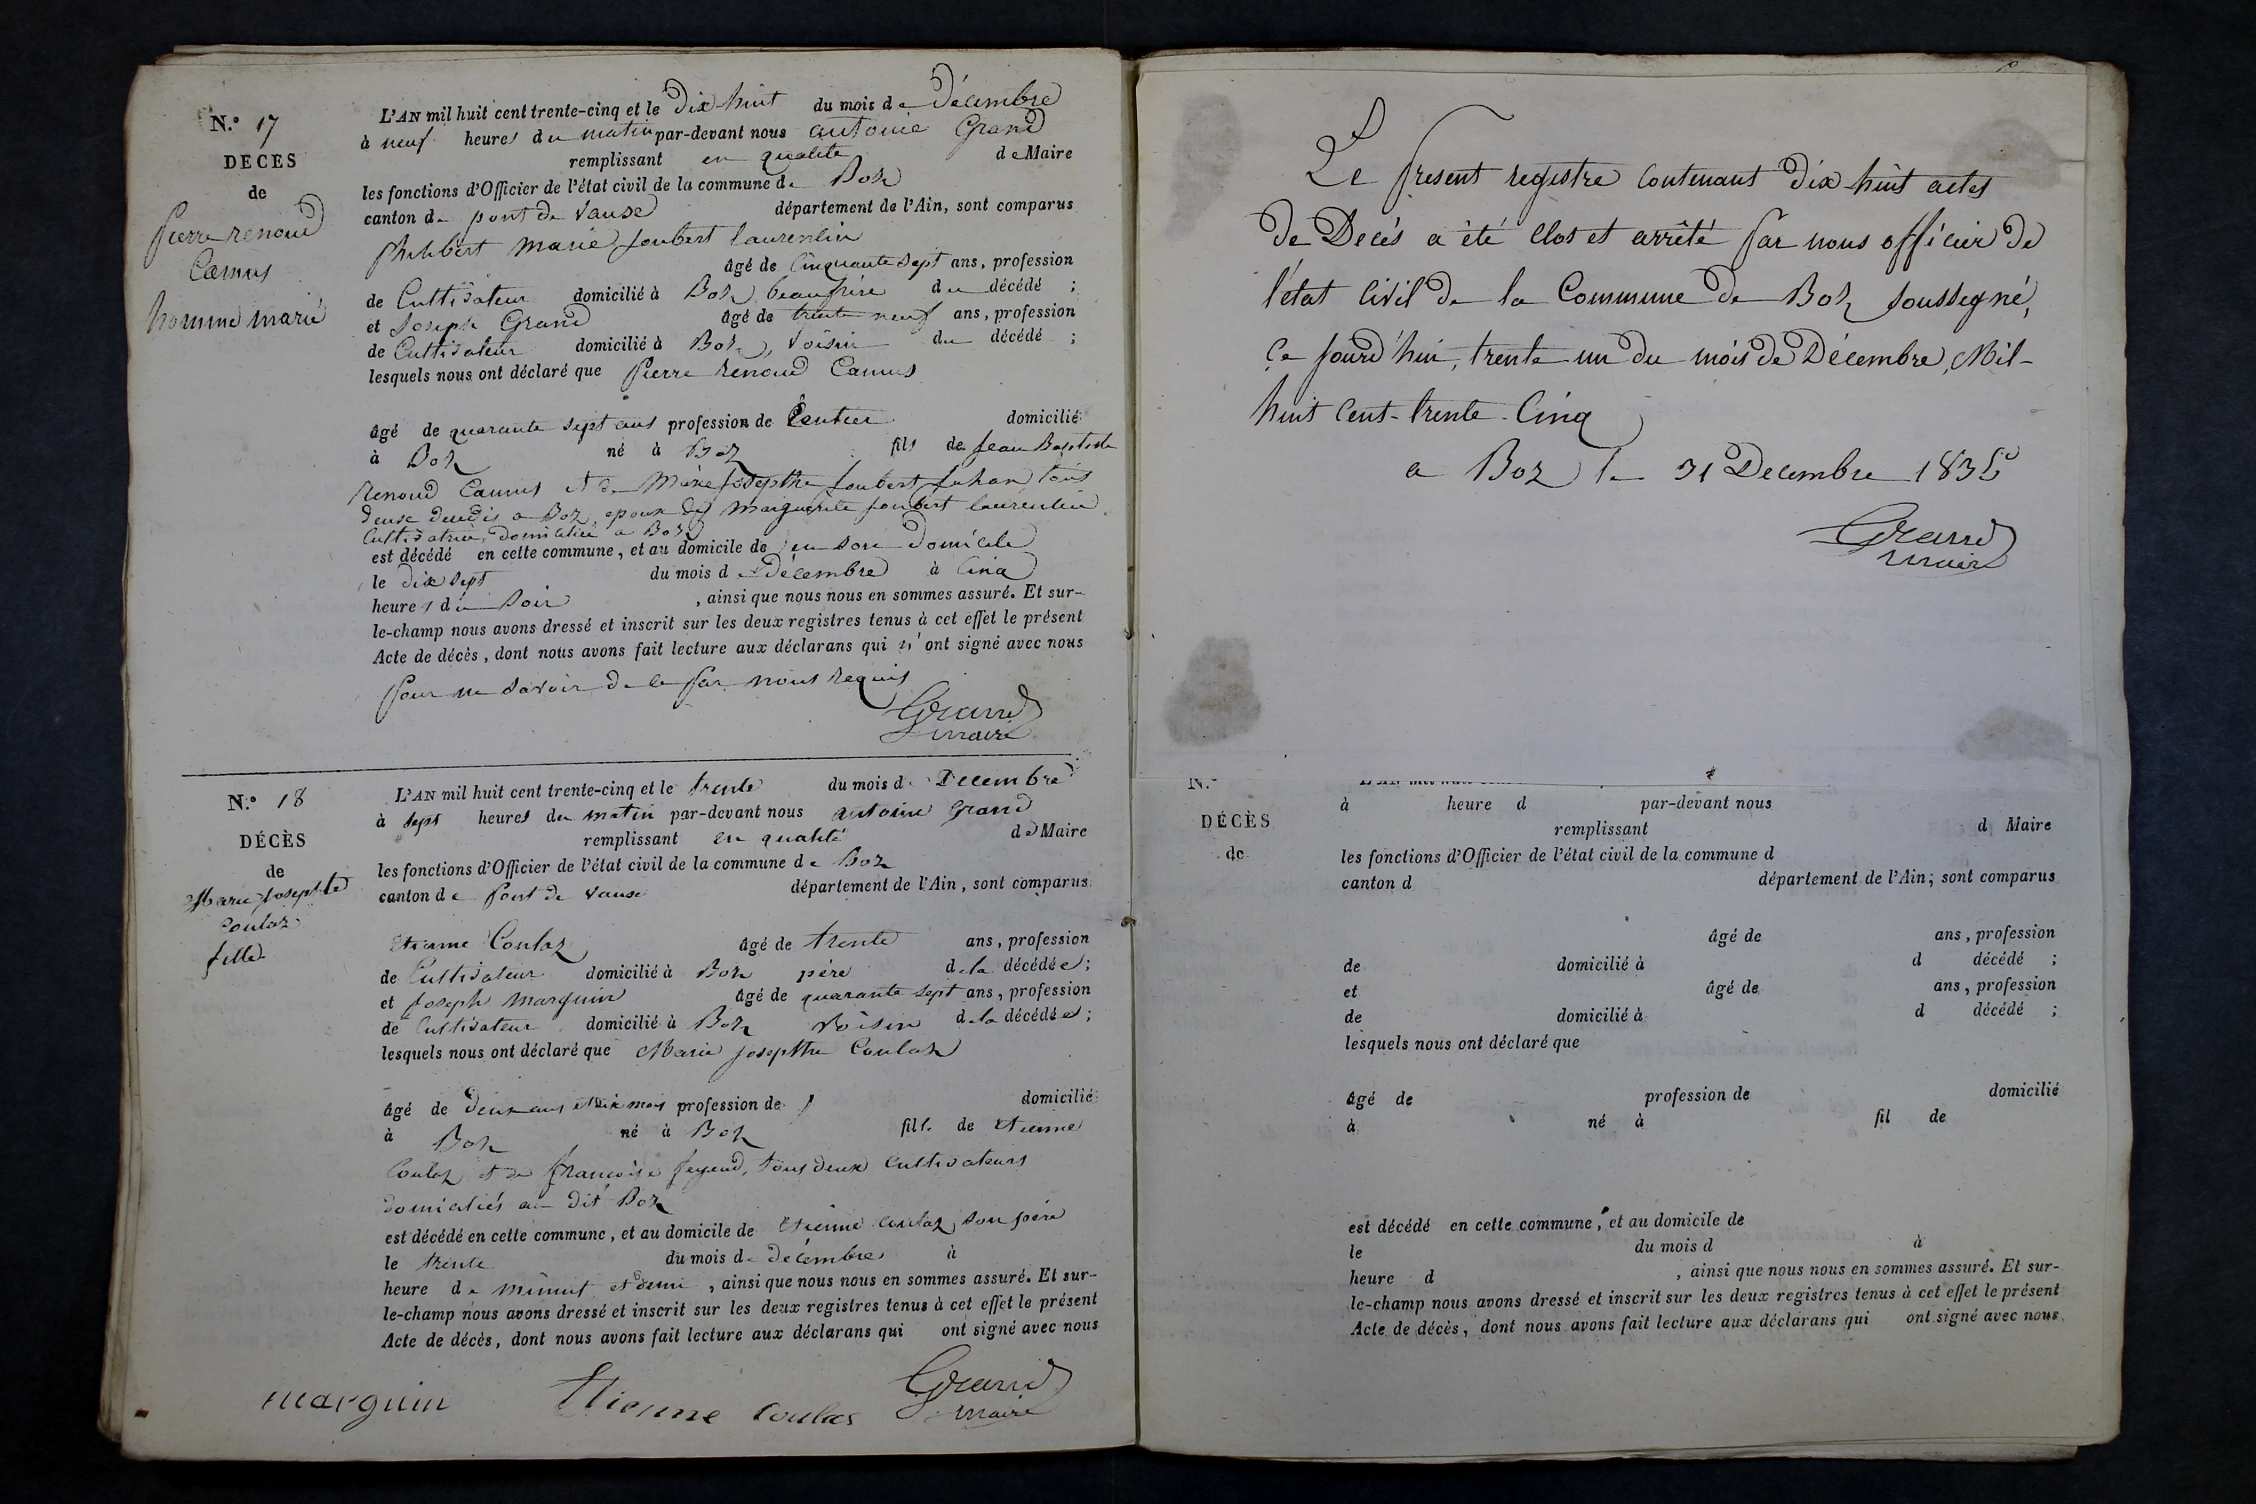 N.º 17
DÉCÈS
de
pierre renoud
Camus
homme marié
L'AN mil huit cent trente-cinq et le Dix-huit du mois de Décembre
à neuf heures du matin par-devant nous antoine Grand
remplissant en qualité de Maire
les fonctions d'Officier de l'état civil de la commune de Boz
canton de pont de Vause département de l'Ain, sont comparus
philibert marie joubert laurentin
âgé de Cinquante sept ans, profession
de Cultivateur domicilié à Boz beaufrère du décédé ;
et Joseph Grand âgé de trente neuf ans, profession
de Cultivateur domicilié à Boz, voisin du décédé ;
lesquels nous ont déclaré que pierre renoud Camus
âgé de quarante sept ans profession de Rentier domicilié
à Boz né à Boz fils de jean Baptiste
renoud Camus et de Marie josepthe joubert tous
deux décédés a Boz, epoux de marguerite joubert laurentin
Cultivatrice, domiciliée a Boz
est décédé en cette commune, et au domicile de en son domicile
le dix sept du mois de Décembre à Cinq
heures du Soir , ainsi que nous nous en sommes assuré. Et sur-
le-champ nous avons dressé et inscrit sur les deux registres tenus à cet effet le présent
Acte de décès, dont nous avons fait lecture aux déclarans qui n'ont signé avec nous
pour ne savoir de ce par nous requis
Grand
maire
N.º 18
DÉCÈS
de
Marie Josepthe
Coulaz
fille
L'AN mil huit cent trente-cinq et le trente du mois de Decembre
à sept heures du matin par-devant nous antoine Grand
remplissant en qualité de Maire
les fonctions d'Officier de l'état civil de la commune de Boz
canton de pont de vause département de l'Ain, sont comparus
Etienne Coulaz âgé de trente ans, profession
de Cultivateur domicilié à Boz père de la décédée ;
et joseph marguin âgé de quarante sept ans, profession
de Cultivateur domicilié à Boz voisin de la décédée ;
lesquels nous ont déclaré que Marie josepthe Coulaz
âgé de deux ans et dix mois profession de domicilié
à Boz né à Boz fille de Etienne
Coulaz et de françoise feyeud, tous deux Cultivateurs
domiciliés au dit Boz
est décédé en cette commune, et au domicile de Etienne Coulaz, son père
le trente du mois de Décembre à
heure de minuit et demi , ainsi que nous nous en sommes assuré. Et sur-
le-champ nous avons dressé et inscrit sur les deux registres tenus à cet effet le présent
Acte de décès, dont nous avons fait lecture aux déclarans qui ont signé avec nous
marguin Etienne Coulas Grand
maire
Le present registre contenant dix-huit actes
de Decés a été clos et arrêté par nous officier de
l'état Civil de la Commune de Boz soussigné,
Ce jourd'hui, trente un du mois de Décembre, Mil-
huit Cent-trente-Cinq
a Boz le 31 Decembre 1835
Grand
maire
N.º
DÉCÈS
de
à heure d par-devant nous
remplissant d Maire
les fonctions d'Officier de l'état civil de la commune d
canton d département de l'Ain; sont comparus
âgé de ans, profession
de domicilié à d décédé ;
et âgé de ans, profession
de domicilié à d décédé ;
lesquels nous ont déclaré que
âgé de profession de domicilié
à né à fil de
est décédé en cette commune, et au domicile de
le du mois d à
heure d , ainsi que nous nous en sommes assuré. Et sur-
le-champ nous avons dressé et inscrit sur les deux registres tenus à cet effet le présent
Acte de décès, dont nous avons fait lecture aux déclarans qui ont signé avec nous